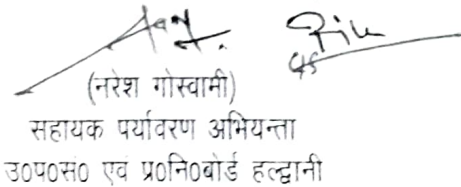 (नरेश गोस्वामी)
सहायक पर्यावरण अभियन्ता
उ०प०सं० एवं प्र०नि०बोर्ड हल्द्वानी